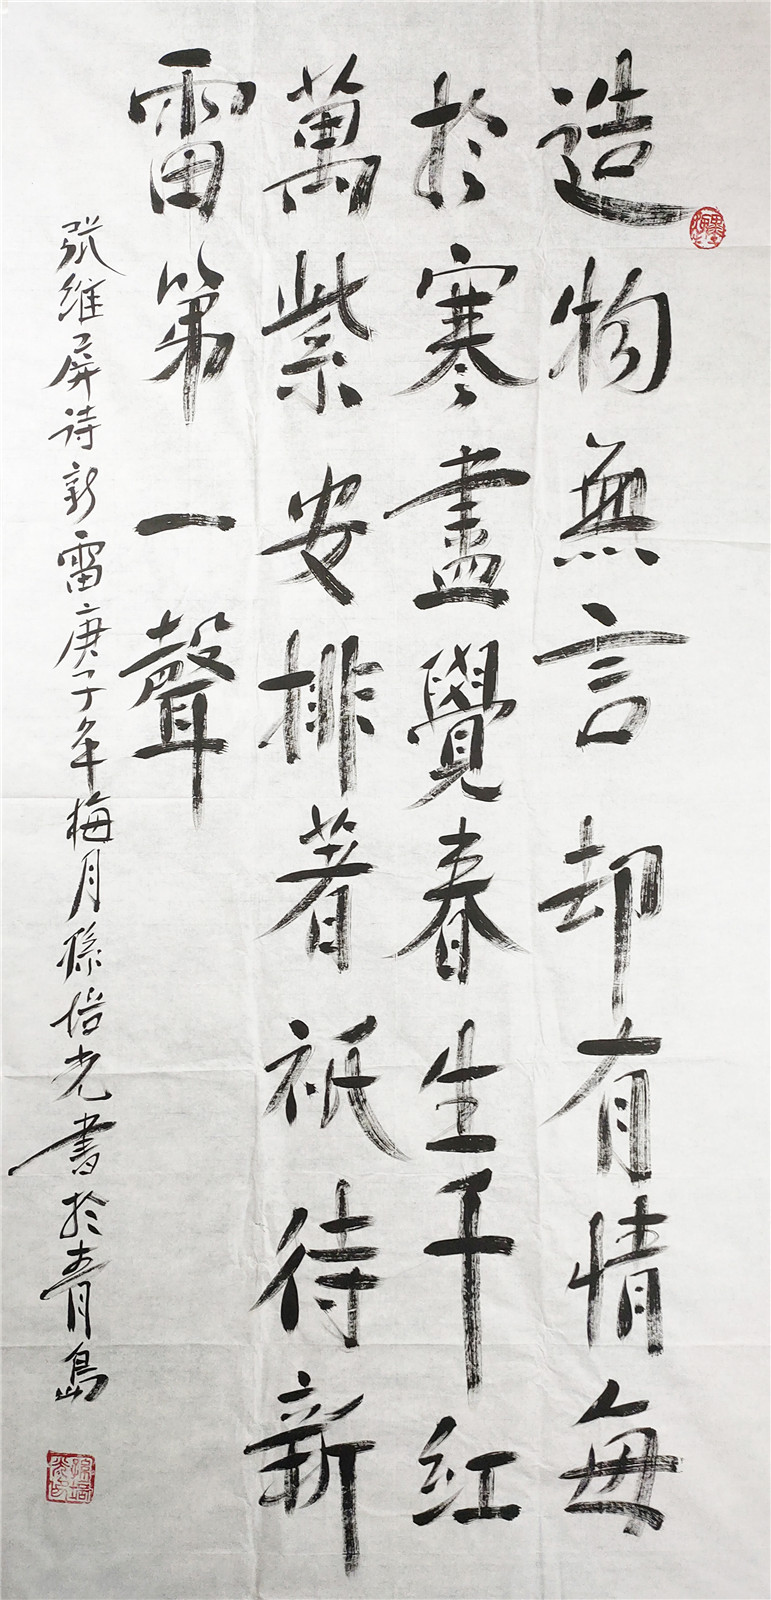 造物無言却有情每
於寒盡覺春生千红
萬紫安排著祇待新
雷第一聲
张维屏诗新雷庚子年梅月孫培光書於青島